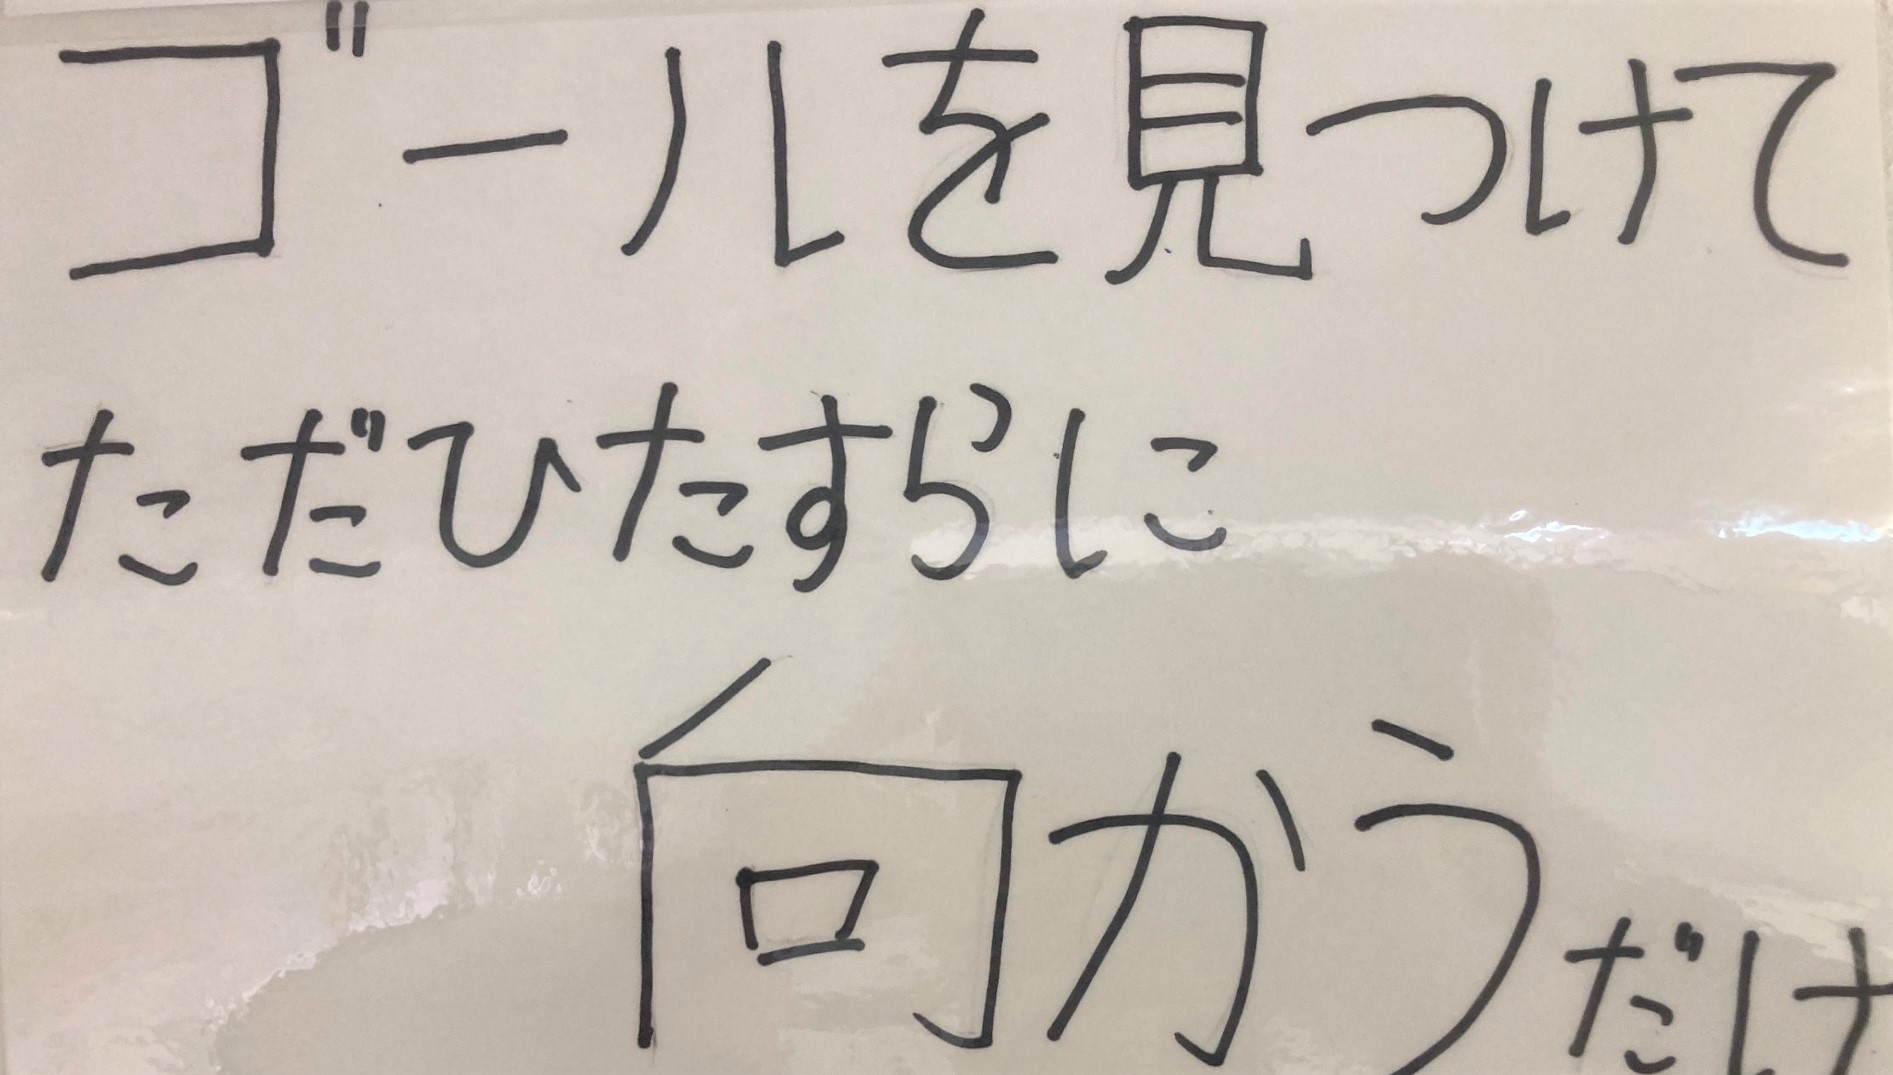 ゴールを見つけて
ただひたすらに
向かうだけ